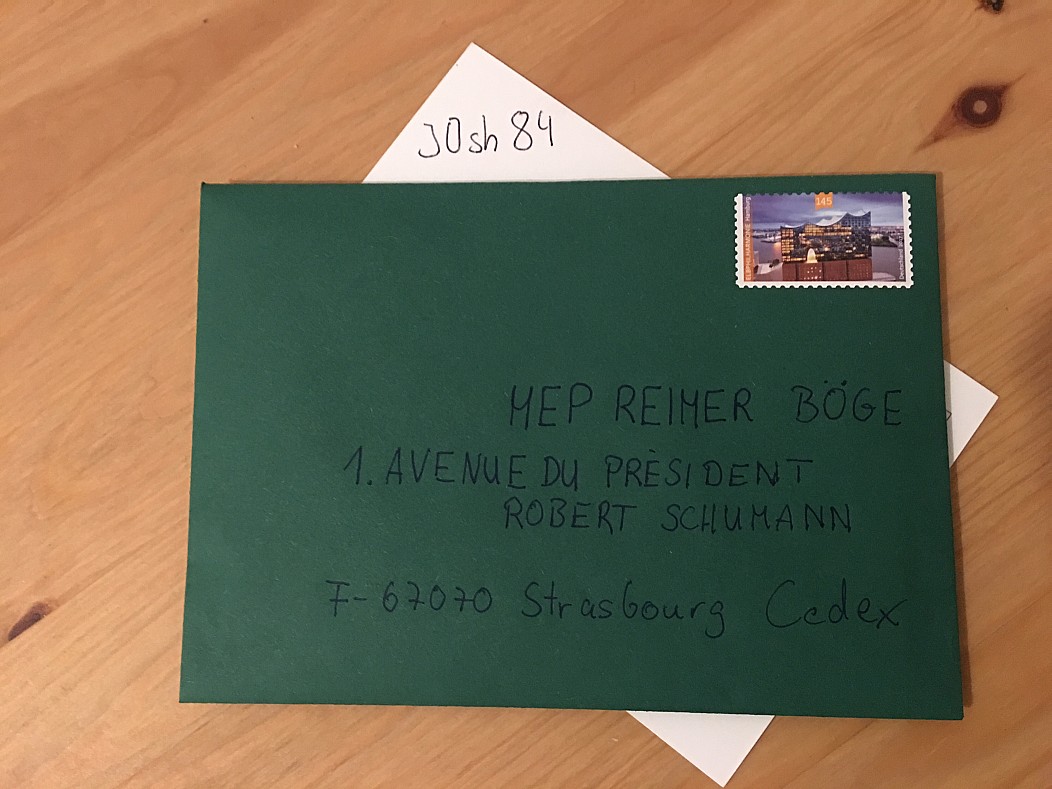 JOsh 84
145
ELBPHILHARMONIE Hamburg
Deutschland
MEP REIMER BÖGE
1. AVENUE DU PRÈSIDENT
ROBERT SCHUMANN
F-67070 Strasbourg Cedex